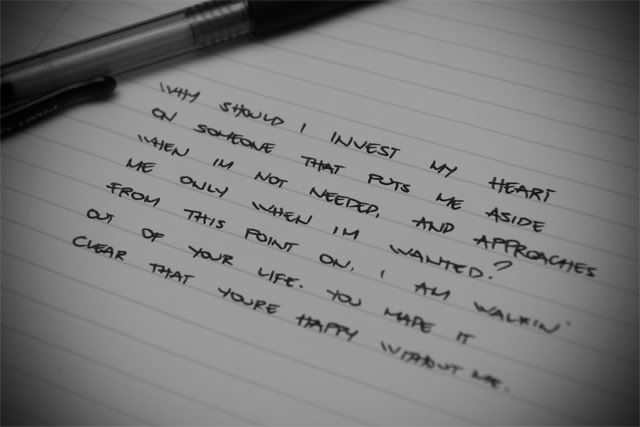 WHY SHOULD I INVEST MY HEART
ON SOMEONE THAT PUTS ME ASIDE
WHEN IM NOT NEEDED, AND APPROACHES
ME ONLY WHEN IM WANTED?
FROM THIS POINT ON, I AM WALKIN'
OUT OF YOUR LIFE. YOU MADE IT
CLEAR THAT YOURE HAPPY WITHOUT ME.